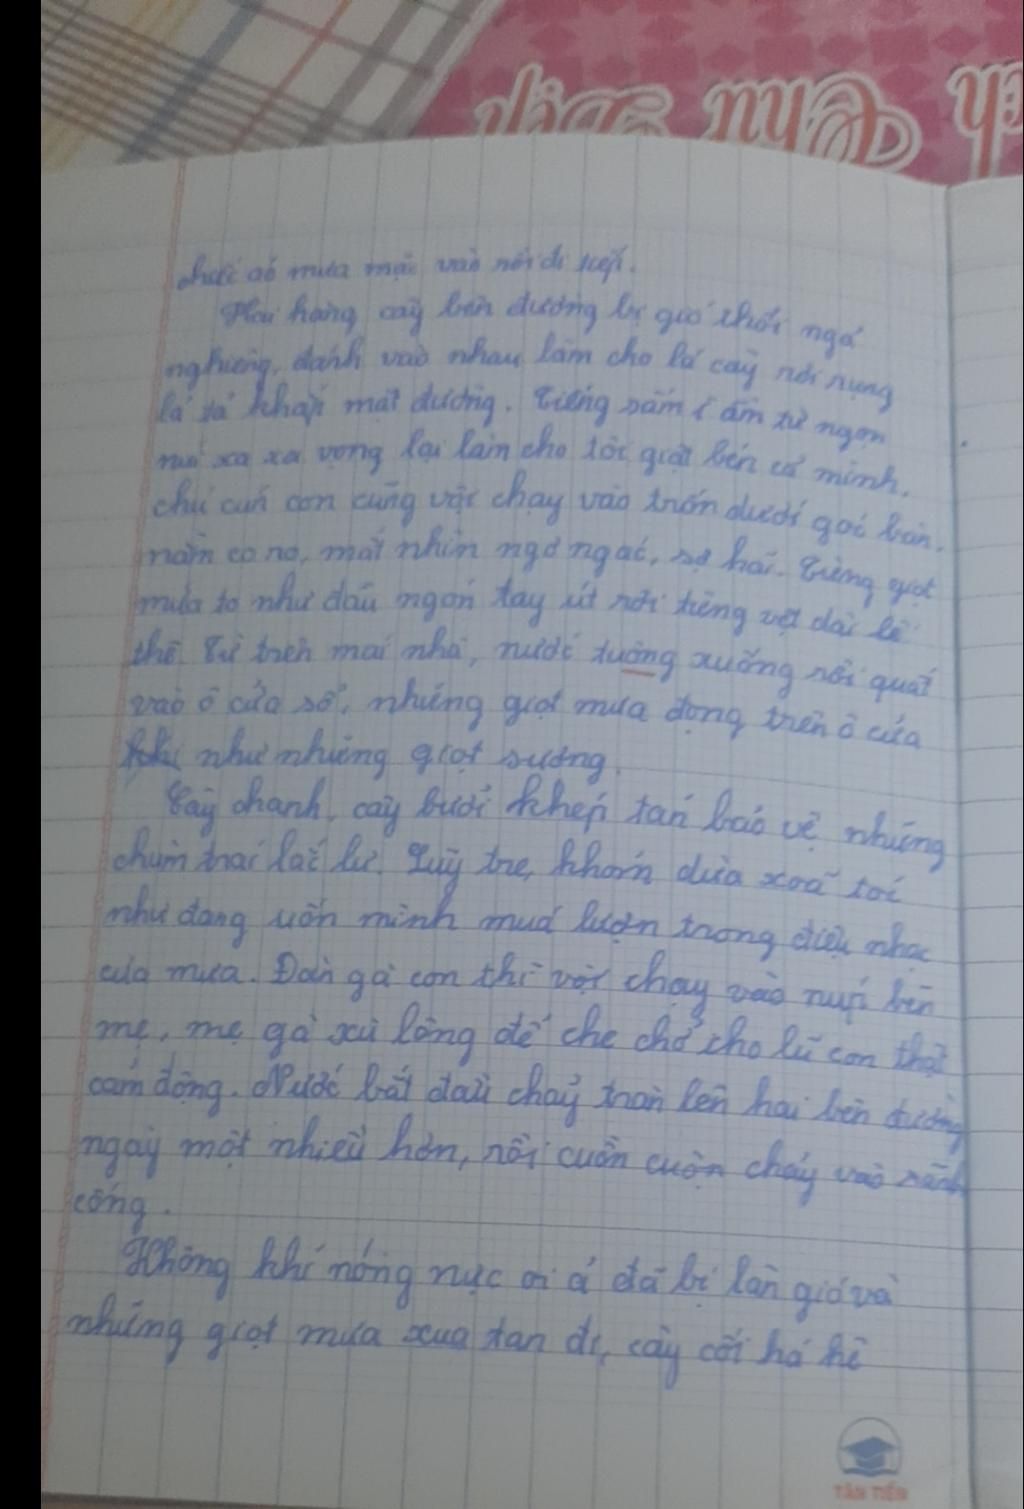 áo mưa mặc vào rồi đi tiếp.
Hai hàng cây bên đường bị gió thổi ngả
nghiêng, đánh vào nhau làm cho lá cây rơi rụng
lả tả khắp mặt đường. Tiếng sấm ì ầm từ ngọn
núi xa xa vọng lại làm cho tôi giật bén cả mình.
chú cún con cũng vội chạy vào trốn dưới gốc bàn,
nằm co ro, mắt nhìn ngơ ngác, sợ hãi. Từng giọt
mưa to như đầu ngón tay út rơi tiếng vệt dài lê
thê. Từ trên mái nhà, nước tuông xuống rồi quất
vào ô cửa sổ, những giọt mưa đọng trên ô cửa
như những giọt sương.
Cây chanh, cây bưởi khép tán bảo vệ những
chùm trái lắc lư. Lũy tre, khóm dừa xoã tóc
như đang uốn mình múa lượn trong điệu nhạc
của mưa. Đàn gà con thì vội chạy vào núp bên
mẹ, mẹ gà xù lông để che chở cho lũ con thật
cảm động. Nước bắt đầu chảy tràn lên hai bên đường
ngày một nhiều hơn, rồi cuồn cuộn chảy vào rãnh
cống.
Không khí nóng nực oi ả đã bị làn gió và
những giọt mưa xua tan đi, cây cối hả hê
TÂN TIẾN